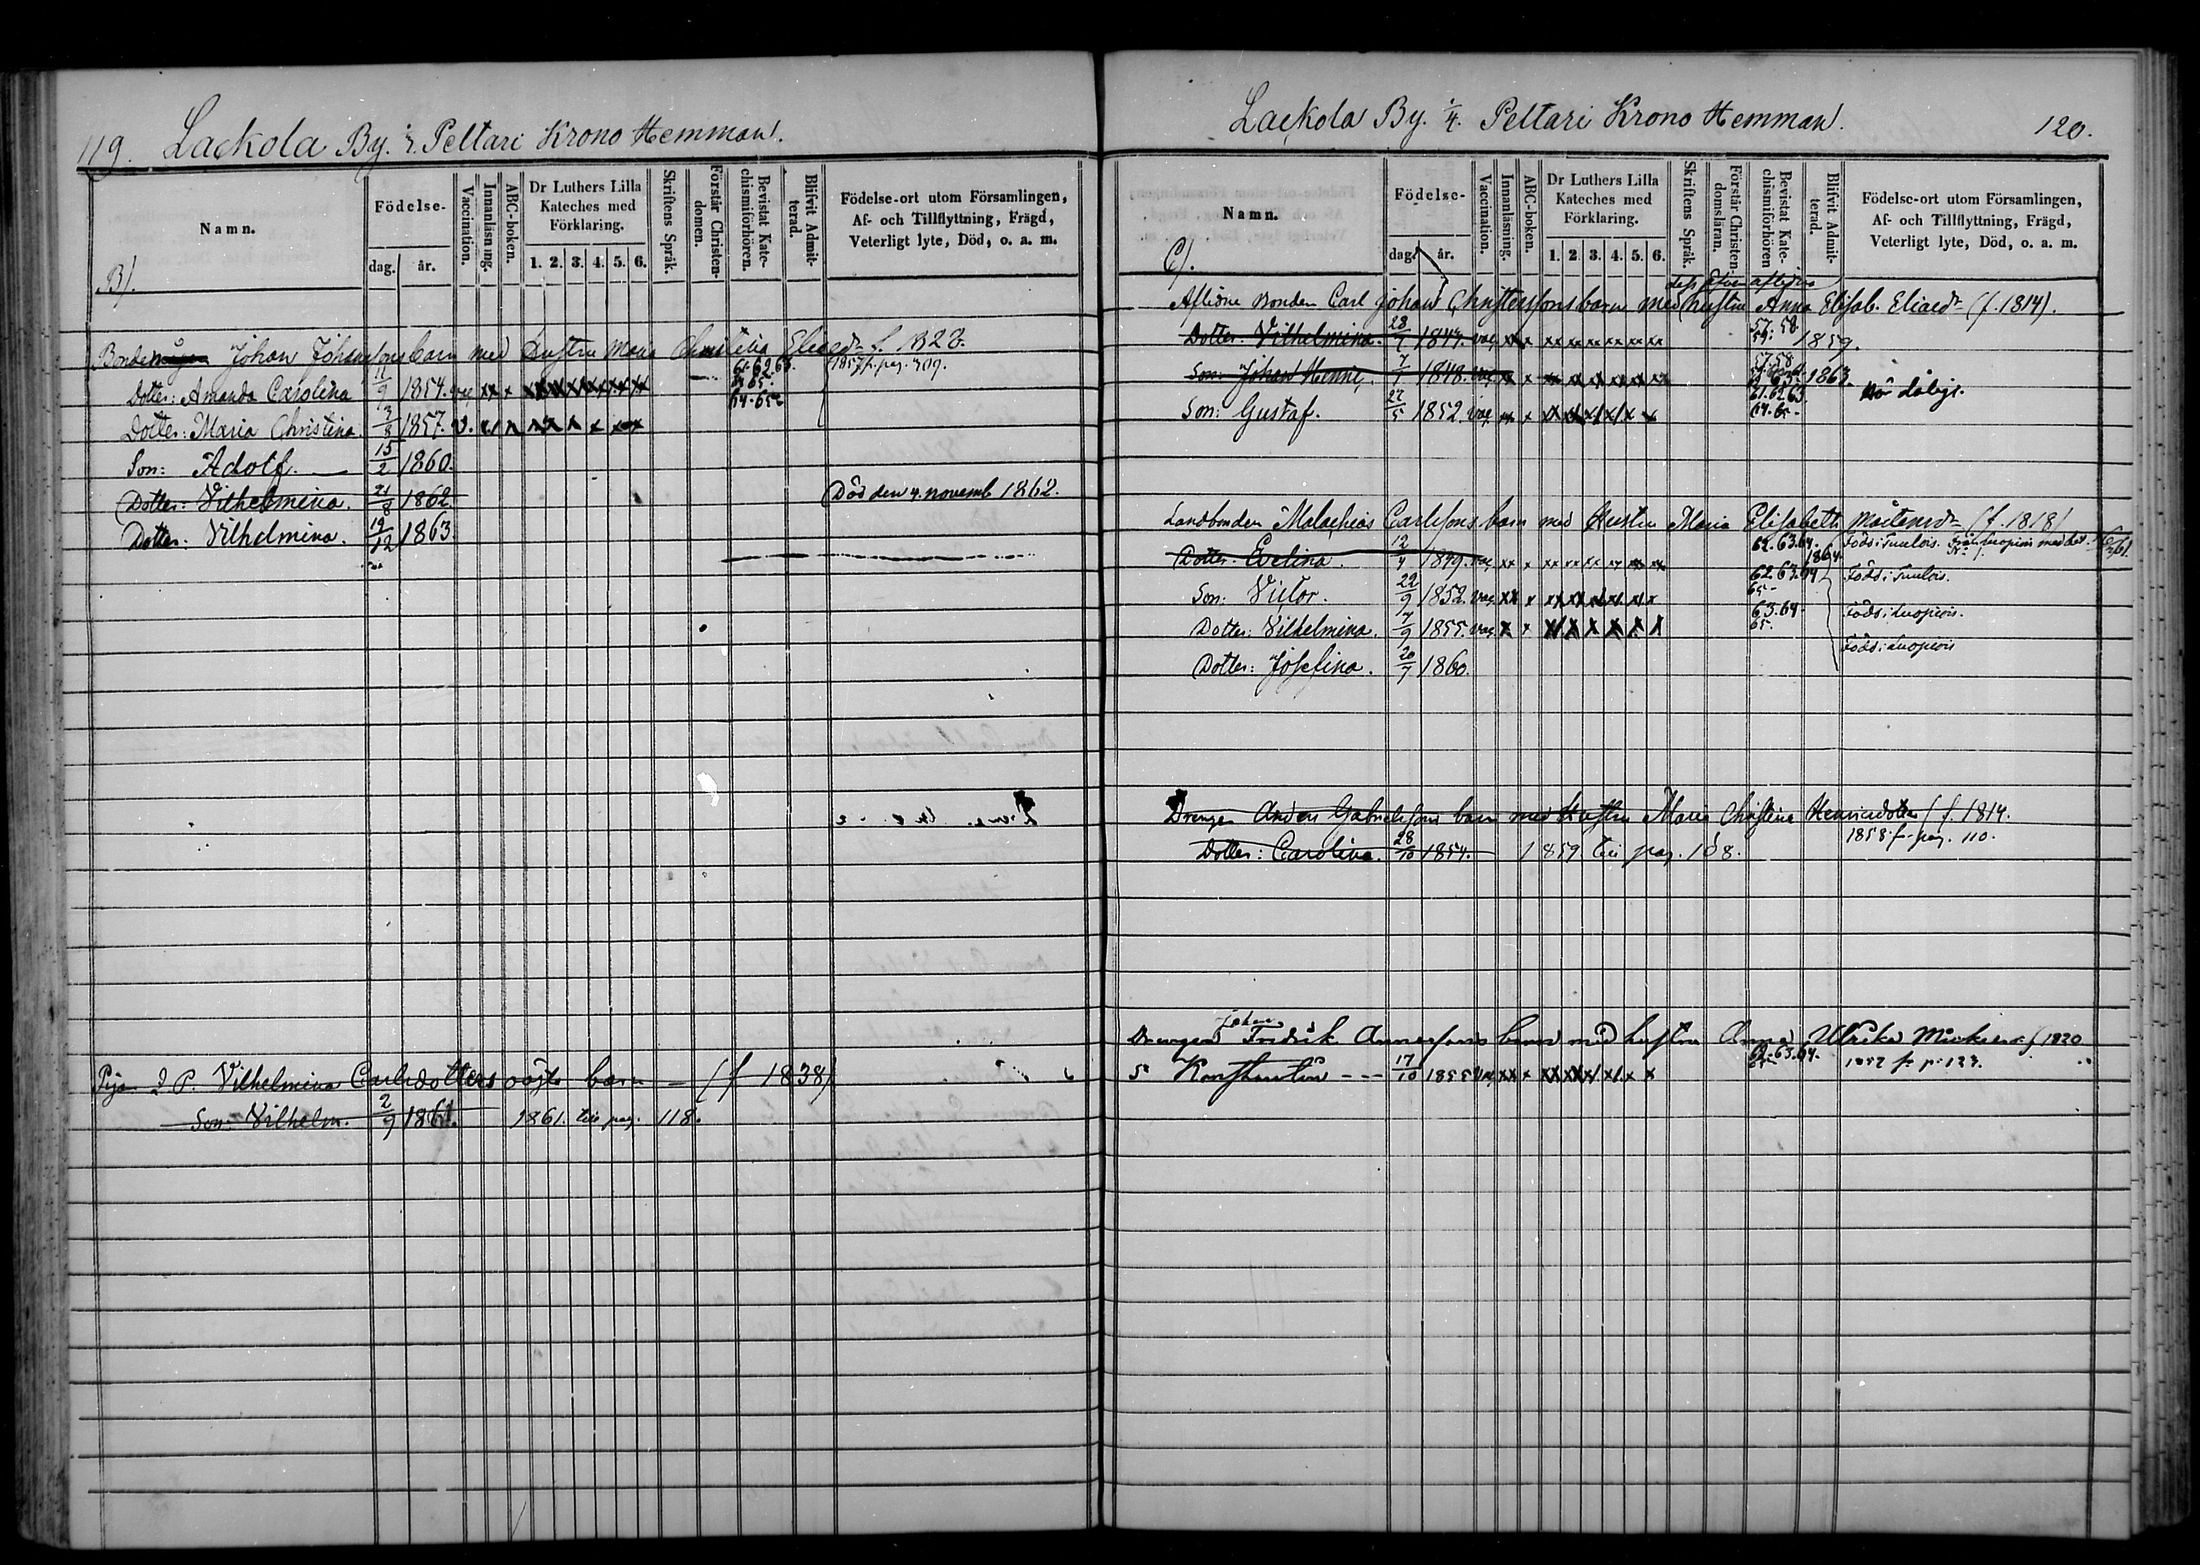 119. Lackola By. Peltari Krono Hemman.
Namn. Födelse- dag. år. Vaccination. Innanläsning. ABC-boken. Dr Luthers Lilla Kateches med Förklaring. 1. 2. 3. 4. 5. 6. Skriftens Språk. Förstår Christendomen. Bevistat Katechismiförhören. Blifvit Admitterad. Födelse-ort utom Församlingen, Af- och Tillflyttning, Frägd, Veterligt lyte, Död, o. a. m.
B).
Johan Johanssons barn med Hustru Maria f. 1828.
Dotter: Amanda Carolina 11/9 1854. vac xx x 61. 62. 63. 64. 65. 1857 fr. pag.
Dotter: Maria Christina. 3/3 1857. v. 64. 65.
Son: Adolf. 15/2 1860.
Dotter: Vilhelmina. 21/8 1862. Död den 4. novemb 1862.
Dotter: Vilhelmina. 19/12 1863
Pigan J. P. Vilhelmina Carlsdotters oägta barn — (f 1838)
Son: Vilhelm. 2/9 1861. 1861. till pag. 118.
Lackola By. 1/4. Peltari Krono Hemman. 120.
Namn. Födelse- dag. år. Vaccination. Innanläsning. ABC-boken. Dr Luthers Lilla Kateches med Förklaring. 1. 2. 3. 4. 5. 6. Skriftens Språk. Förstår Christendomsläran. Bevistat Katechismiförhören Blifvit Admitterad. Födelse-ort utom Församlingen, Af- och Tillflyttning, Frägd, Veterligt lyte, Död, o. a. m.
C).
Aflidne Bonden Carl Johan Christerssons barn med hustru Anna Elisab. Eliaedr (f. 1814).
Dotter: Vilhelmina. 28/7 1844. vac. 57. 58. 59. 1859.
Son: Johan Henric. 7/7 1848. vac. 57 58 1863.
Son: Gustaf. 22/5 1852. vac. 61. 62 63 64. 65.
Landbonden Malachias Carlssons barn med Hustru Maria Elisabeth (f. 1818)
Dotter: Evelina. 12/4 1849. vac. 62. 63. 64. 1864. Född i Tuulois.
Son: Victor. 22/9 1852. vac. 62 63. 64 65 Född i Tuulois.
Dotter: Vilhelmina. 7/9 1855. vac. 63. 64 65. Född i Luopiois.
Dotter: Josefina. 20/7 1860. Född i Luopiois
Drengen Anders Gabrielssons barn med Hustru Maria Christina Henricsdotter (f. 1814.
1858 fr. pag. 110.
Dotter: Carolina. 28/10 1854. 1859 till pag. 108.
Johan
Drengen Fridrik barn med hustru Anna Ulrika f 1820
S Konstantin --- 17/10 1855 62. 63. 64. 65